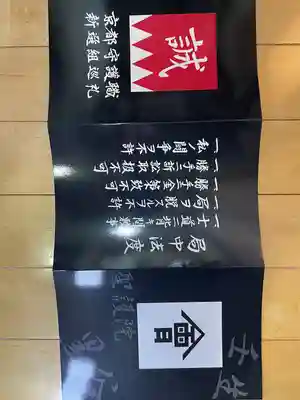 誠
京都守護職
新選組巡礼
局中法度
一、士道ニ背キ間敷事
一、局ヲ脱スルヲ不許
一、勝手ニ金策致不可
一、勝手ニ訴訟取扱不可
一、私ノ闘争ヲ不許
聖護院
會
壬生